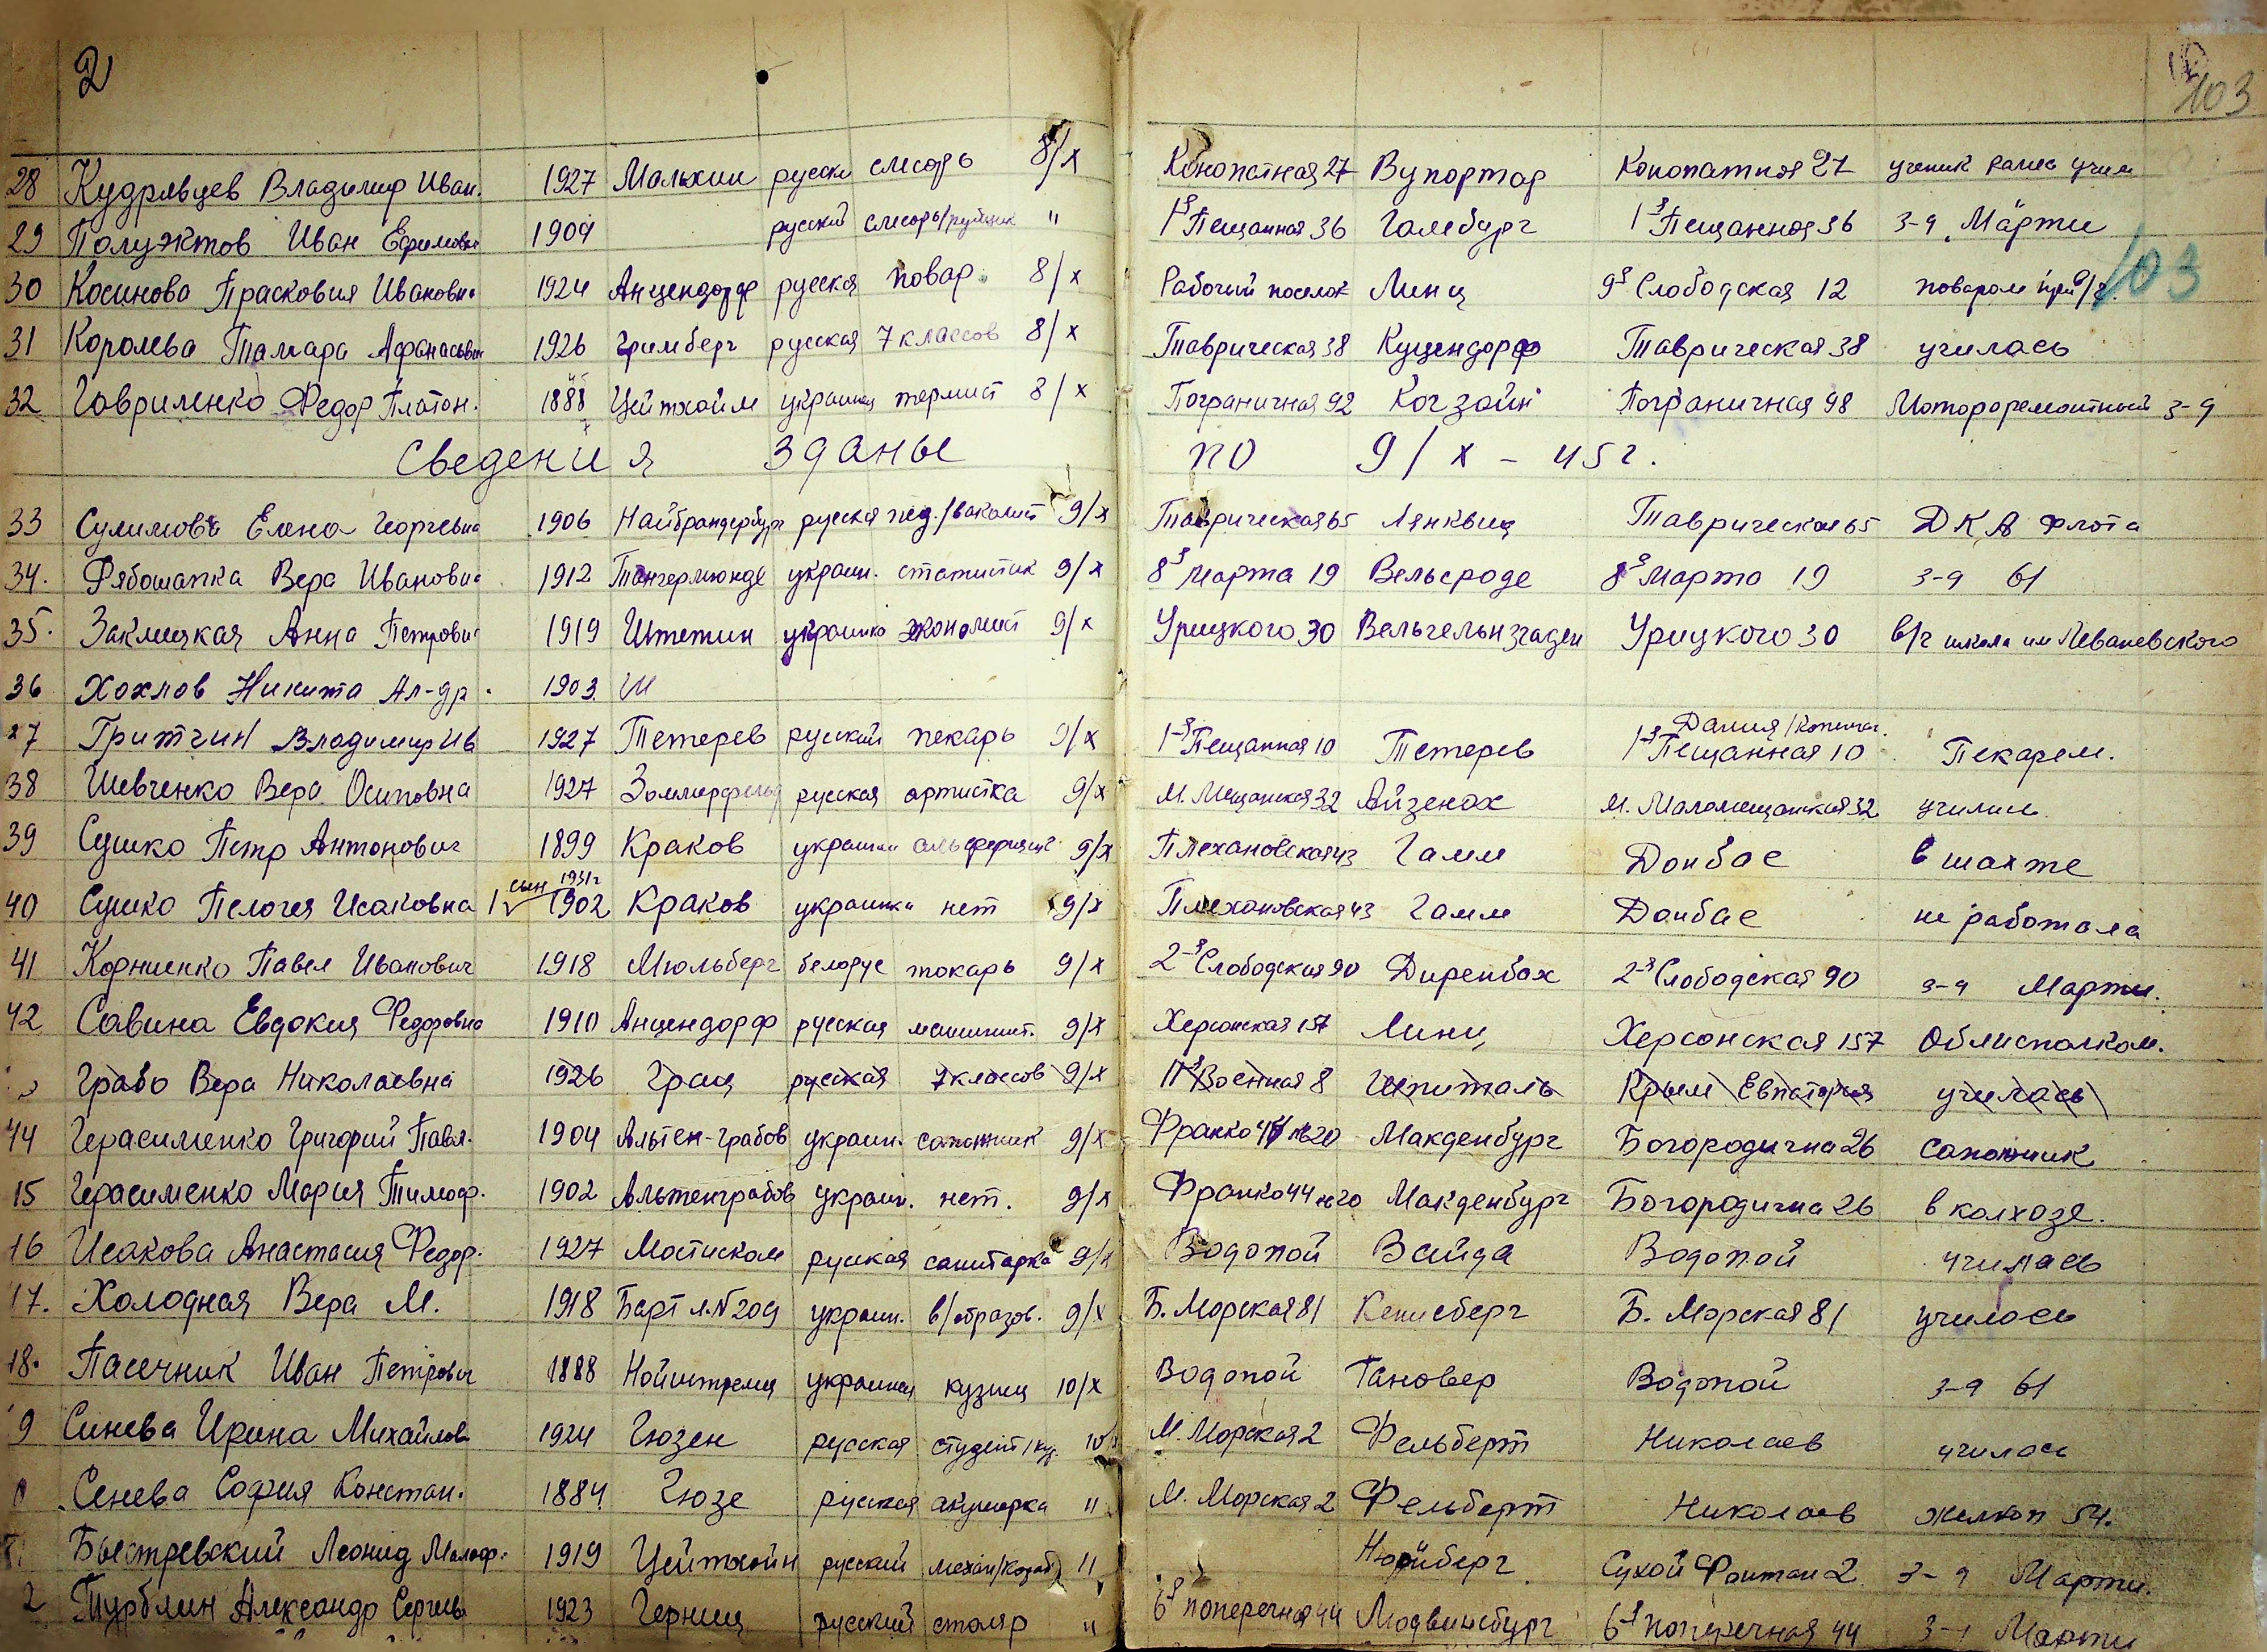 2
103
103
28 Кудрявцев Владимир Иван. 1927 Малхин русски слесарь 8/х Конопатная 27 Вупортар Конопатная 27 ученик
29 Полуэктов Иван Ефимович 1904 русский слесарь " 1я Пещанная 36 Гамбург 1я Пещанная 36 з-д Марти
30 Косинова Прасковия Ивановна 1924 Анцендорф русская повар 8/х Рабочий поселок Линц 9я Слободская 12 поваром
31 Королева Тамара Афанасьевн 1926 Гримберг русская 7 классов 8/х Таврическая 38 Куцендорф Таврическая 38 училась
32 Гавриленко Федор Платон. 1888 Цейтхайм украинец термист 8/х Пограничная 92 Погзайн Пограничная 98 Мотороремонтный з-д
Сведения зданы по 9/х - 45 г.
33 Сулимова Елена Георгевна 1906 Найбрандербург русская пед./вакалист 9/х Таврическая 65 Лянквиц Таврическая 65 ДКА Флота
34. Рябошапка Вера Ивановна 1912 Тангермюнде украин. статистик 9/х 8я Марта 19 Вельсроде 8я Марта 19 з-д 61
35. Заклицкая Анна Петровн 1919 Штетин украинка экономист 9/х Урицкого 30 Урицкого 30 в/г школа им Леваневского
36 Хохлов Никита Ал-др. 1903. Ш
37 Гритчин Владимир Ив 1927 Тетерев русский пекарь 9/х 1-я Пещанная 10 Тетерев 1-я Пещанная 10 Пекарем.
38 Шевченко Вера Осиповна 1927 Зоммерфельд русская артистка 9/х М. Мещанская 32 Айзенах М. Маломещанская 32 училась
39 Сушко Петр Антонович 1899 Краков украинец 9/х Плехановская 43 Гамм Донбас в шахте
40 Сушко Пелогея Исаковна 1 сын 1931г 1902 Краков украинка нет 9/х Плехановская 43 Гамм Донбас не работала
41 Корниенко Павел Иванович 1918 Мюльберг белорус токарь 9/х 2-я Слободская 90 Диренбах 2-я Слободская 90 з-д Марти.
42 Савина Евдокия Федоровна 1910 Анцендорф русская машинист. 9/х Херсонская 157 Линц Херсонская 157 Облисполком.
Грабо Вера Николаевна 1926 Грац русская 7 классов 9/х 11я Военная 8 Шпиталь Крым Евпатория училась
44 Герасименко Григорий Павл. 1904 Альтен-грабов украин. сапожник 9/х Франко 44 №20 Макденбург Богородична 26 сапожник
15 Герасименко Мария Тимоф. 1902 Альтенграбов украин. нет. 9/х Франко 44 №20 Макденбург Богородична 26 в колхозе.
16 Исакова Анастасия Федор. 1927 Мостиском русская санитарка 9/х Водопой Вайда Водопой училась
17. Холодная Вера М. 1918 Барт л.№209 украин. в/образов. 9/х Б. Морская 81 Кенисберг Б. Морская 81 училось
18. Пасечник Иван Петрович 1888 Нойштрелиц украинец кузнец 10/х Водопой Гановер Водопой з-д 61
9 Синева Ирина Михайлов 1924 Гюзен русская студент 10/х М. Морская 2 Фельберт Николаев училась
Сенева София Констан. 1884 Гюзе русская акушерка " М. Морская 2 Фельберт Николаев 54.
Быстревский Леонид 1919 Цейтхайн русский механ/кораб) " Нюрнберг Сухой Фонтан 2 з-д Марти.
2 Турблин Александр Сергеев 1923 Герниц русский столяр " 6я поперечная 44 Модвинсбург 6-я поперечная 44 з-д Марти